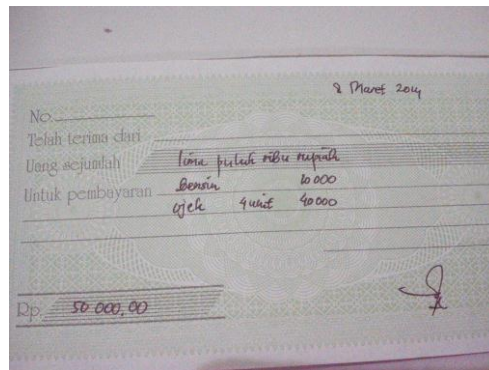 8 Maret 2014
No.
Telah terima dari
Uang sejumlah lima puluh ribu rupiah
Untuk pembayaran bensin 10 000
ojek 4 unit 40 000
Rp. 50 000,00